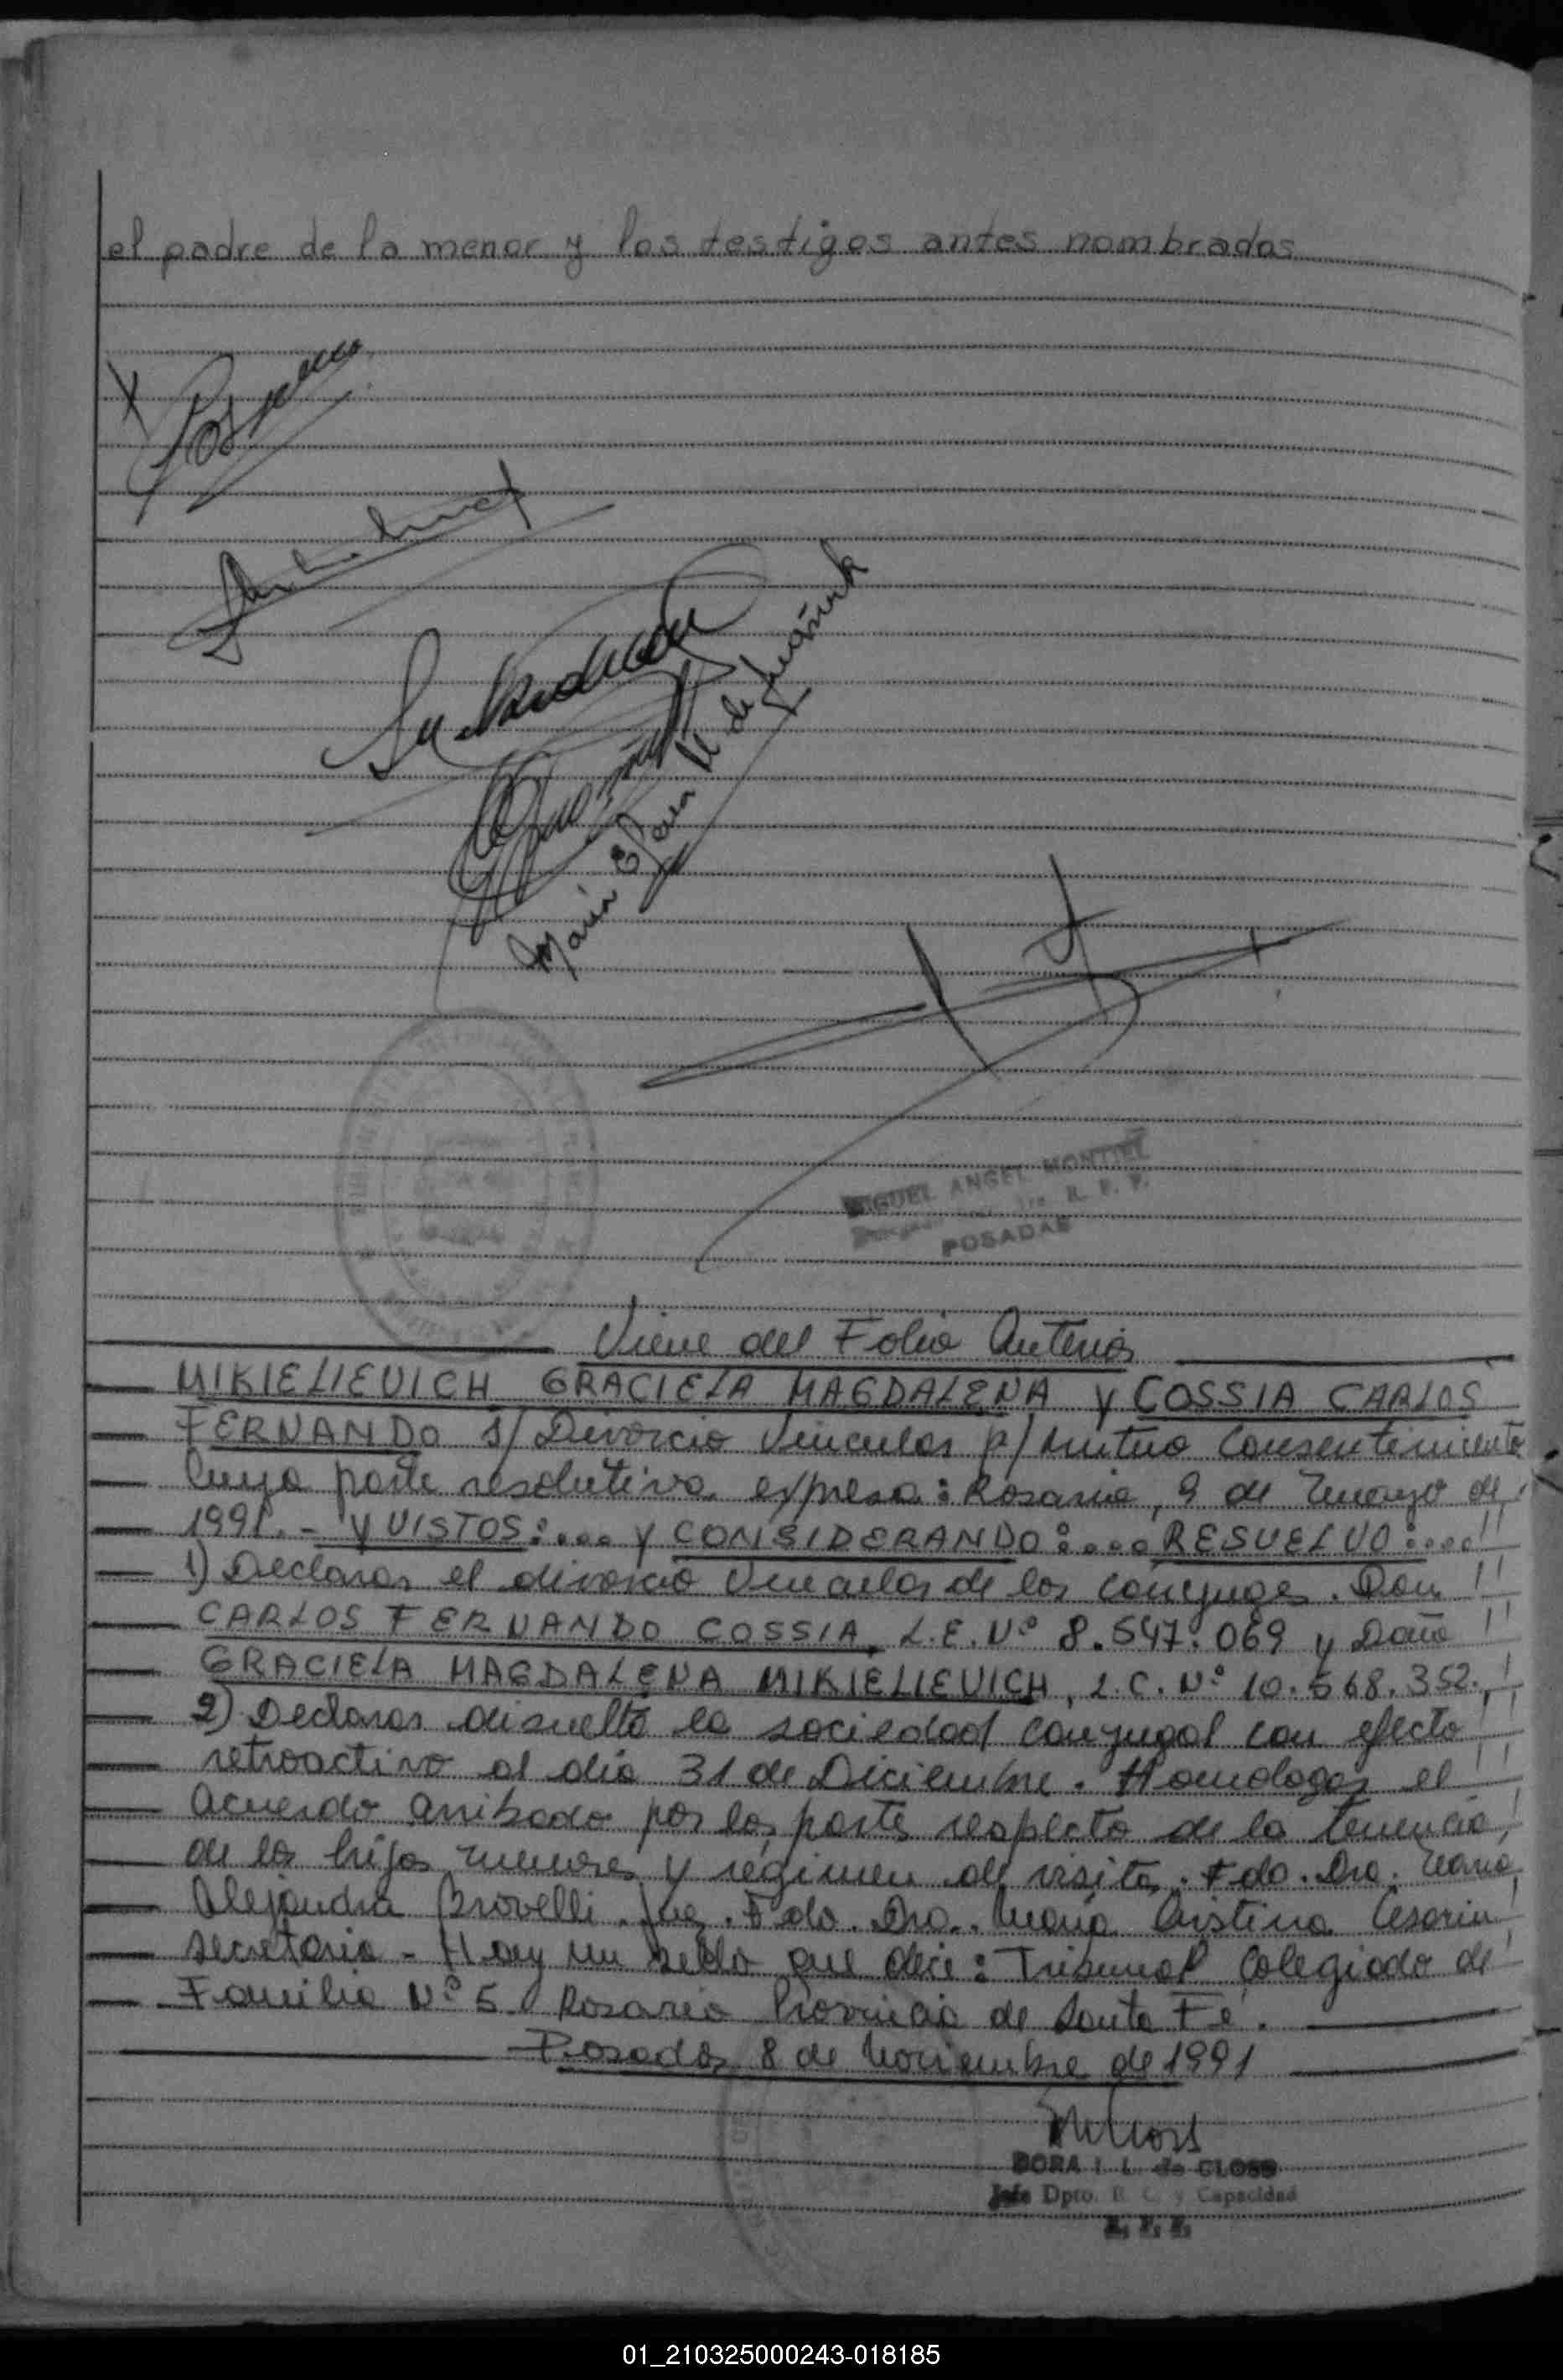 el padre de la menor y los testigos antes nombrados
María Elena N de
MIGUEL ANGEL MONTIEL
R. P. P.
POSADAS
Viene del Folio Anterior
MIKIELIEVICH GRACIELA MAGDALENA y COSSIA CARLOS
FERNANDO s/ Divorcio Vincular p/ Mutuo Consentimiento
Cuya parte resolutiva expresa: Rosario, 9 de Mayo de
1991.- Y VISTOS:.... y CONSIDERANDO:.... RESUELVO:....
1) Declarar el divorcio Vincular de los conyuges. Don
CARLOS FERNANDO COSSIA, L.E. Nº 8.547.069 y Doña
GRACIELA MAGDALENA MIKIELIEVICH, L.C. Nº 10.568.352.
2) Declarar disuelta la sociedad conyugal con efecto
retroactivo al día 31 de Diciembre. Homologar el
Acuerdo arribado por las partes respecto de la tenencia
de los hijos menores y régimen de visita. Fdo. Dra. María
Alejandra Brovelli. Juez. Fdo. Dra. María Cristina Cesarin
secretaria - Hay un sello que dice: Tribunal Colegiado de
Familia Nº 5 Rosario Provincia de Santa Fé.
Posadas 8 de Noviembre de 1991
DORA I. L. de CLOSS
Jefe Dpto. R. C. y Capacidad
R. P. P.
01_210325000243-018185